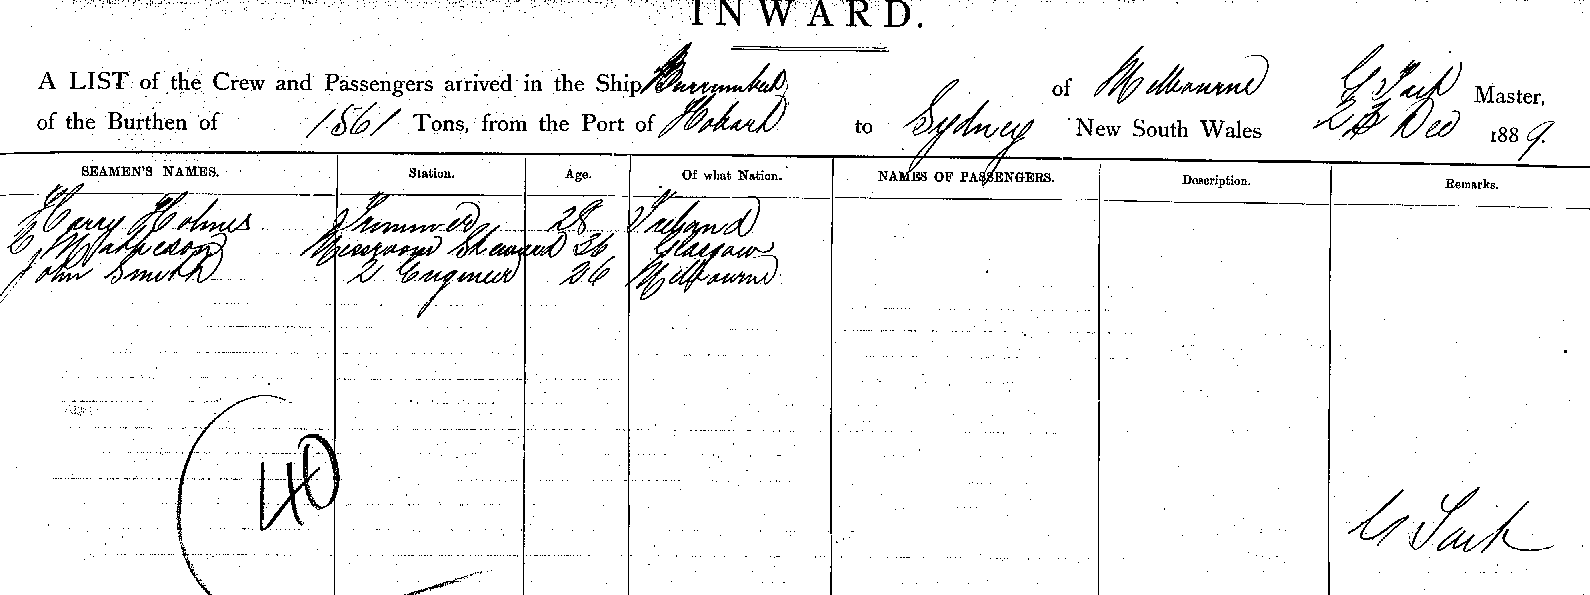 INWARD.
A LIST of the Crew and Passengers arrived in the Ship Burrumbeet of Melbourne G Tait Master,
of the Burthen of 1561 Tons, from the Port of Hobart to Sydney New South Wales Dec 1889.
SEAMEN'S NAMES. Station. Age. Of what Nation. NAMES OF PASSENGERS. Description. Remarks.
Harry Holmes Trimmer 28 Ireland
Messroom Steward 26 Glasgow
John Smith 2 Engineer 26 Melbourne
40
Tait